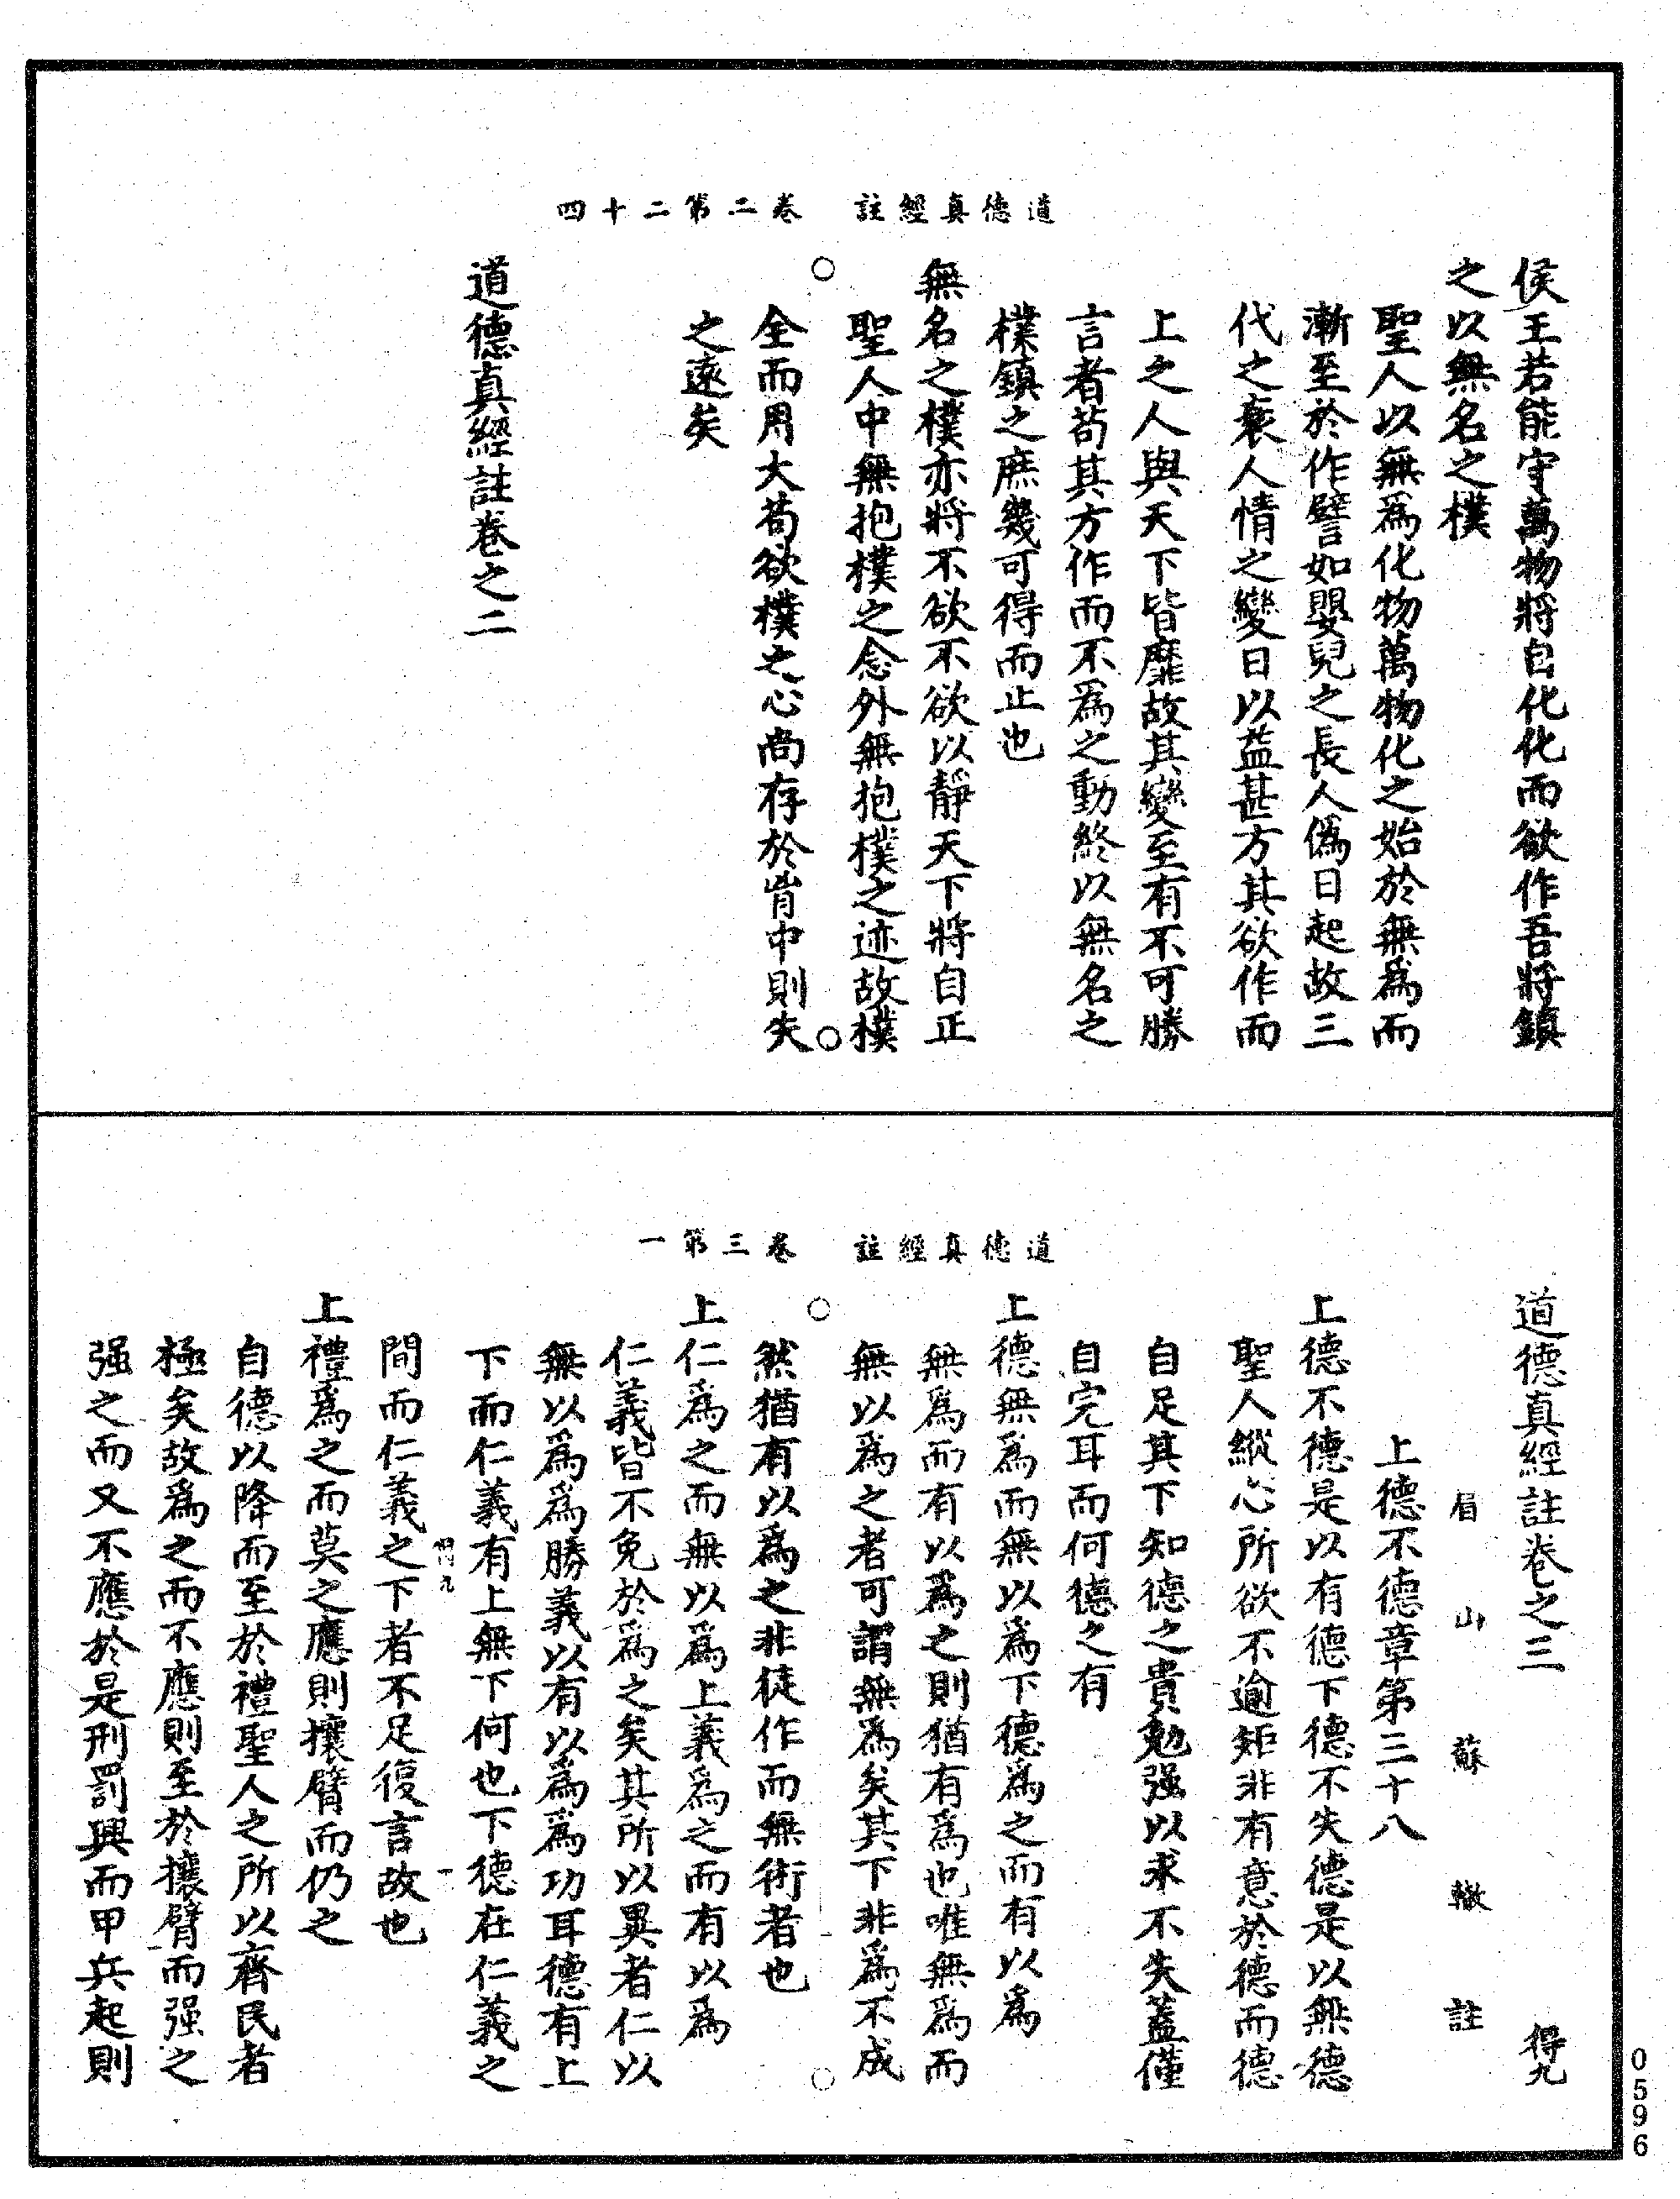 道德真經註　卷二第二十四
侯王若能守萬物將自化化而欲作吾將鎮
之以無名之樸
聖人以無爲化物萬物化之始於無爲而
漸至於作譬如嬰兒之長人僞日起故三
代之衰人情之變日以益甚方其欲作而
上之人與天下皆靡故其變至有不可勝
言者苟其方作而不爲之動終以無名之
樸鎮之庶幾可得而止也
無名之樸亦將不欲不欲以靜天下將自正
聖人中無抱樸之念外無抱樸之迹故樸
全而用大苟欲樸之心尚存於胷中則失
之遠矣
道德真經註卷之二
道德真經註　卷三第一
道德真經註卷之三　得九
眉山蘇轍註
上德不德章第三十八
上德不德是以有德下德不失德是以無德
聖人縱心所欲不逾矩非有意於德而德
自足其下知德之貴勉强以求不失蓋僅
自完耳而何德之有
上德無爲而無以爲下德爲之而有以爲
無爲而有以爲之則猶有爲也唯無爲而
無以爲之者可謂無爲矣其下非爲不成
然猶有以爲之非徒作而無術者也
上仁爲之而無以爲上義爲之而有以爲
仁義皆不免於爲之矣其所以異者仁以
無以爲爲勝義以有以爲爲功耳德有上
下而仁義有上無下何也下德在仁義之
間而仁義之下者不足復言故也
上禮爲之而莫之應則攘臂而仍之
自德以降而至於禮聖人之所以齊民者
極矣故爲之而不應則至於攘臂而强之
强之而又不應於是刑罰興而甲兵起則
0596